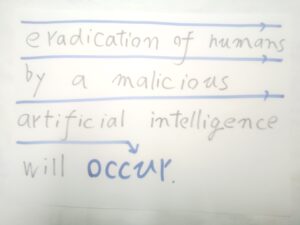 eradication of humans
by a malicious
artificial intelligence
will occur.